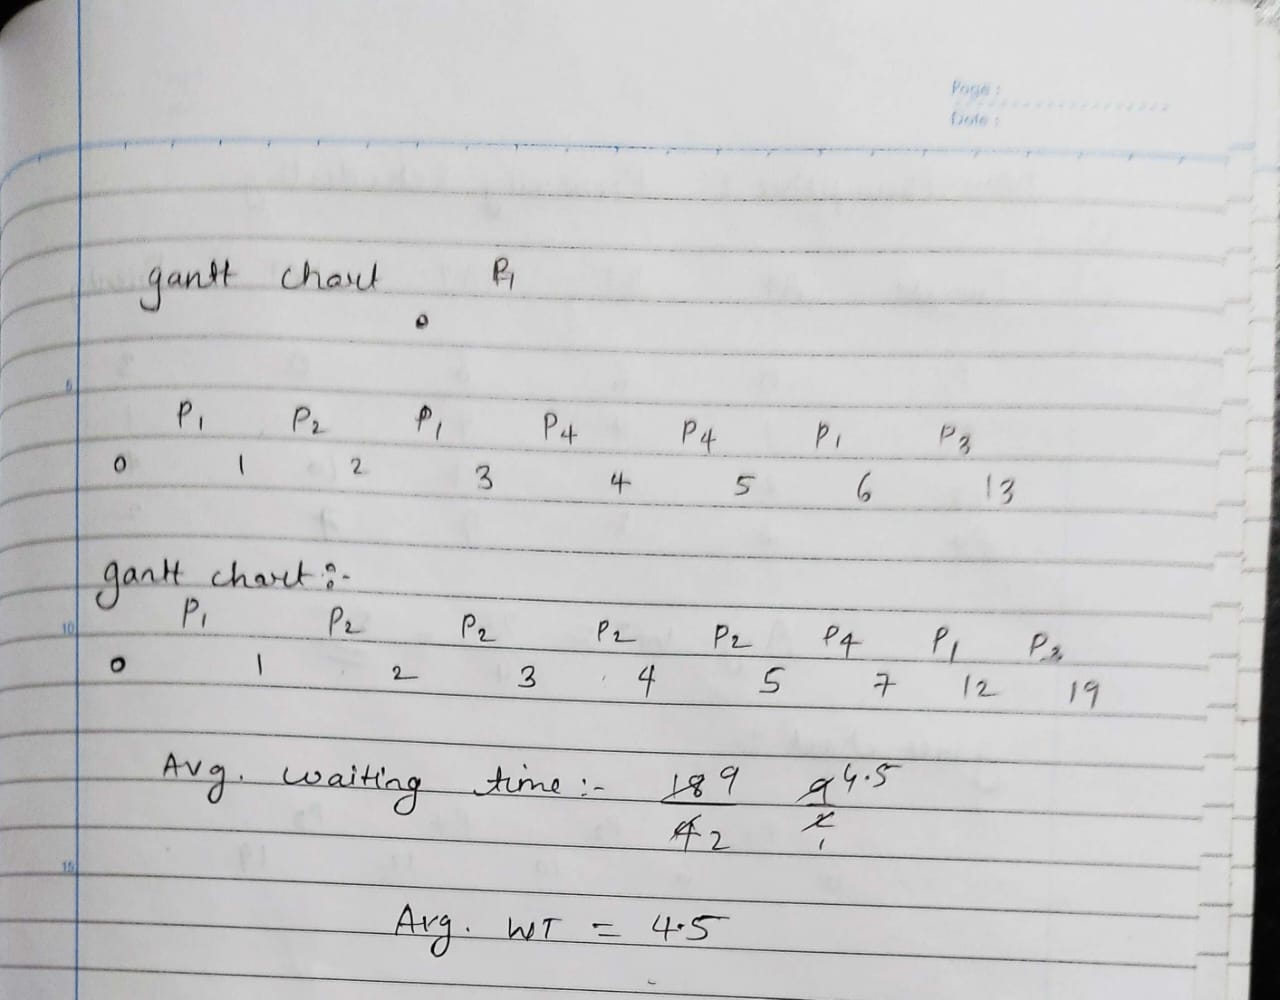 Page :
Date :
gantt chart P1
0
P1 P2 P1 P4 P4 P1 P3
0 1 2 3 4 5 6 13
gantt chart :-
P1 P2 P2 P2 P2 P4 P1 P3
0 1 2 3 4 5 7 12 19
Avg. waiting time :- 18 9 9 4.5
4 2 2 1
Avg. WT = 4.5
5
10
15